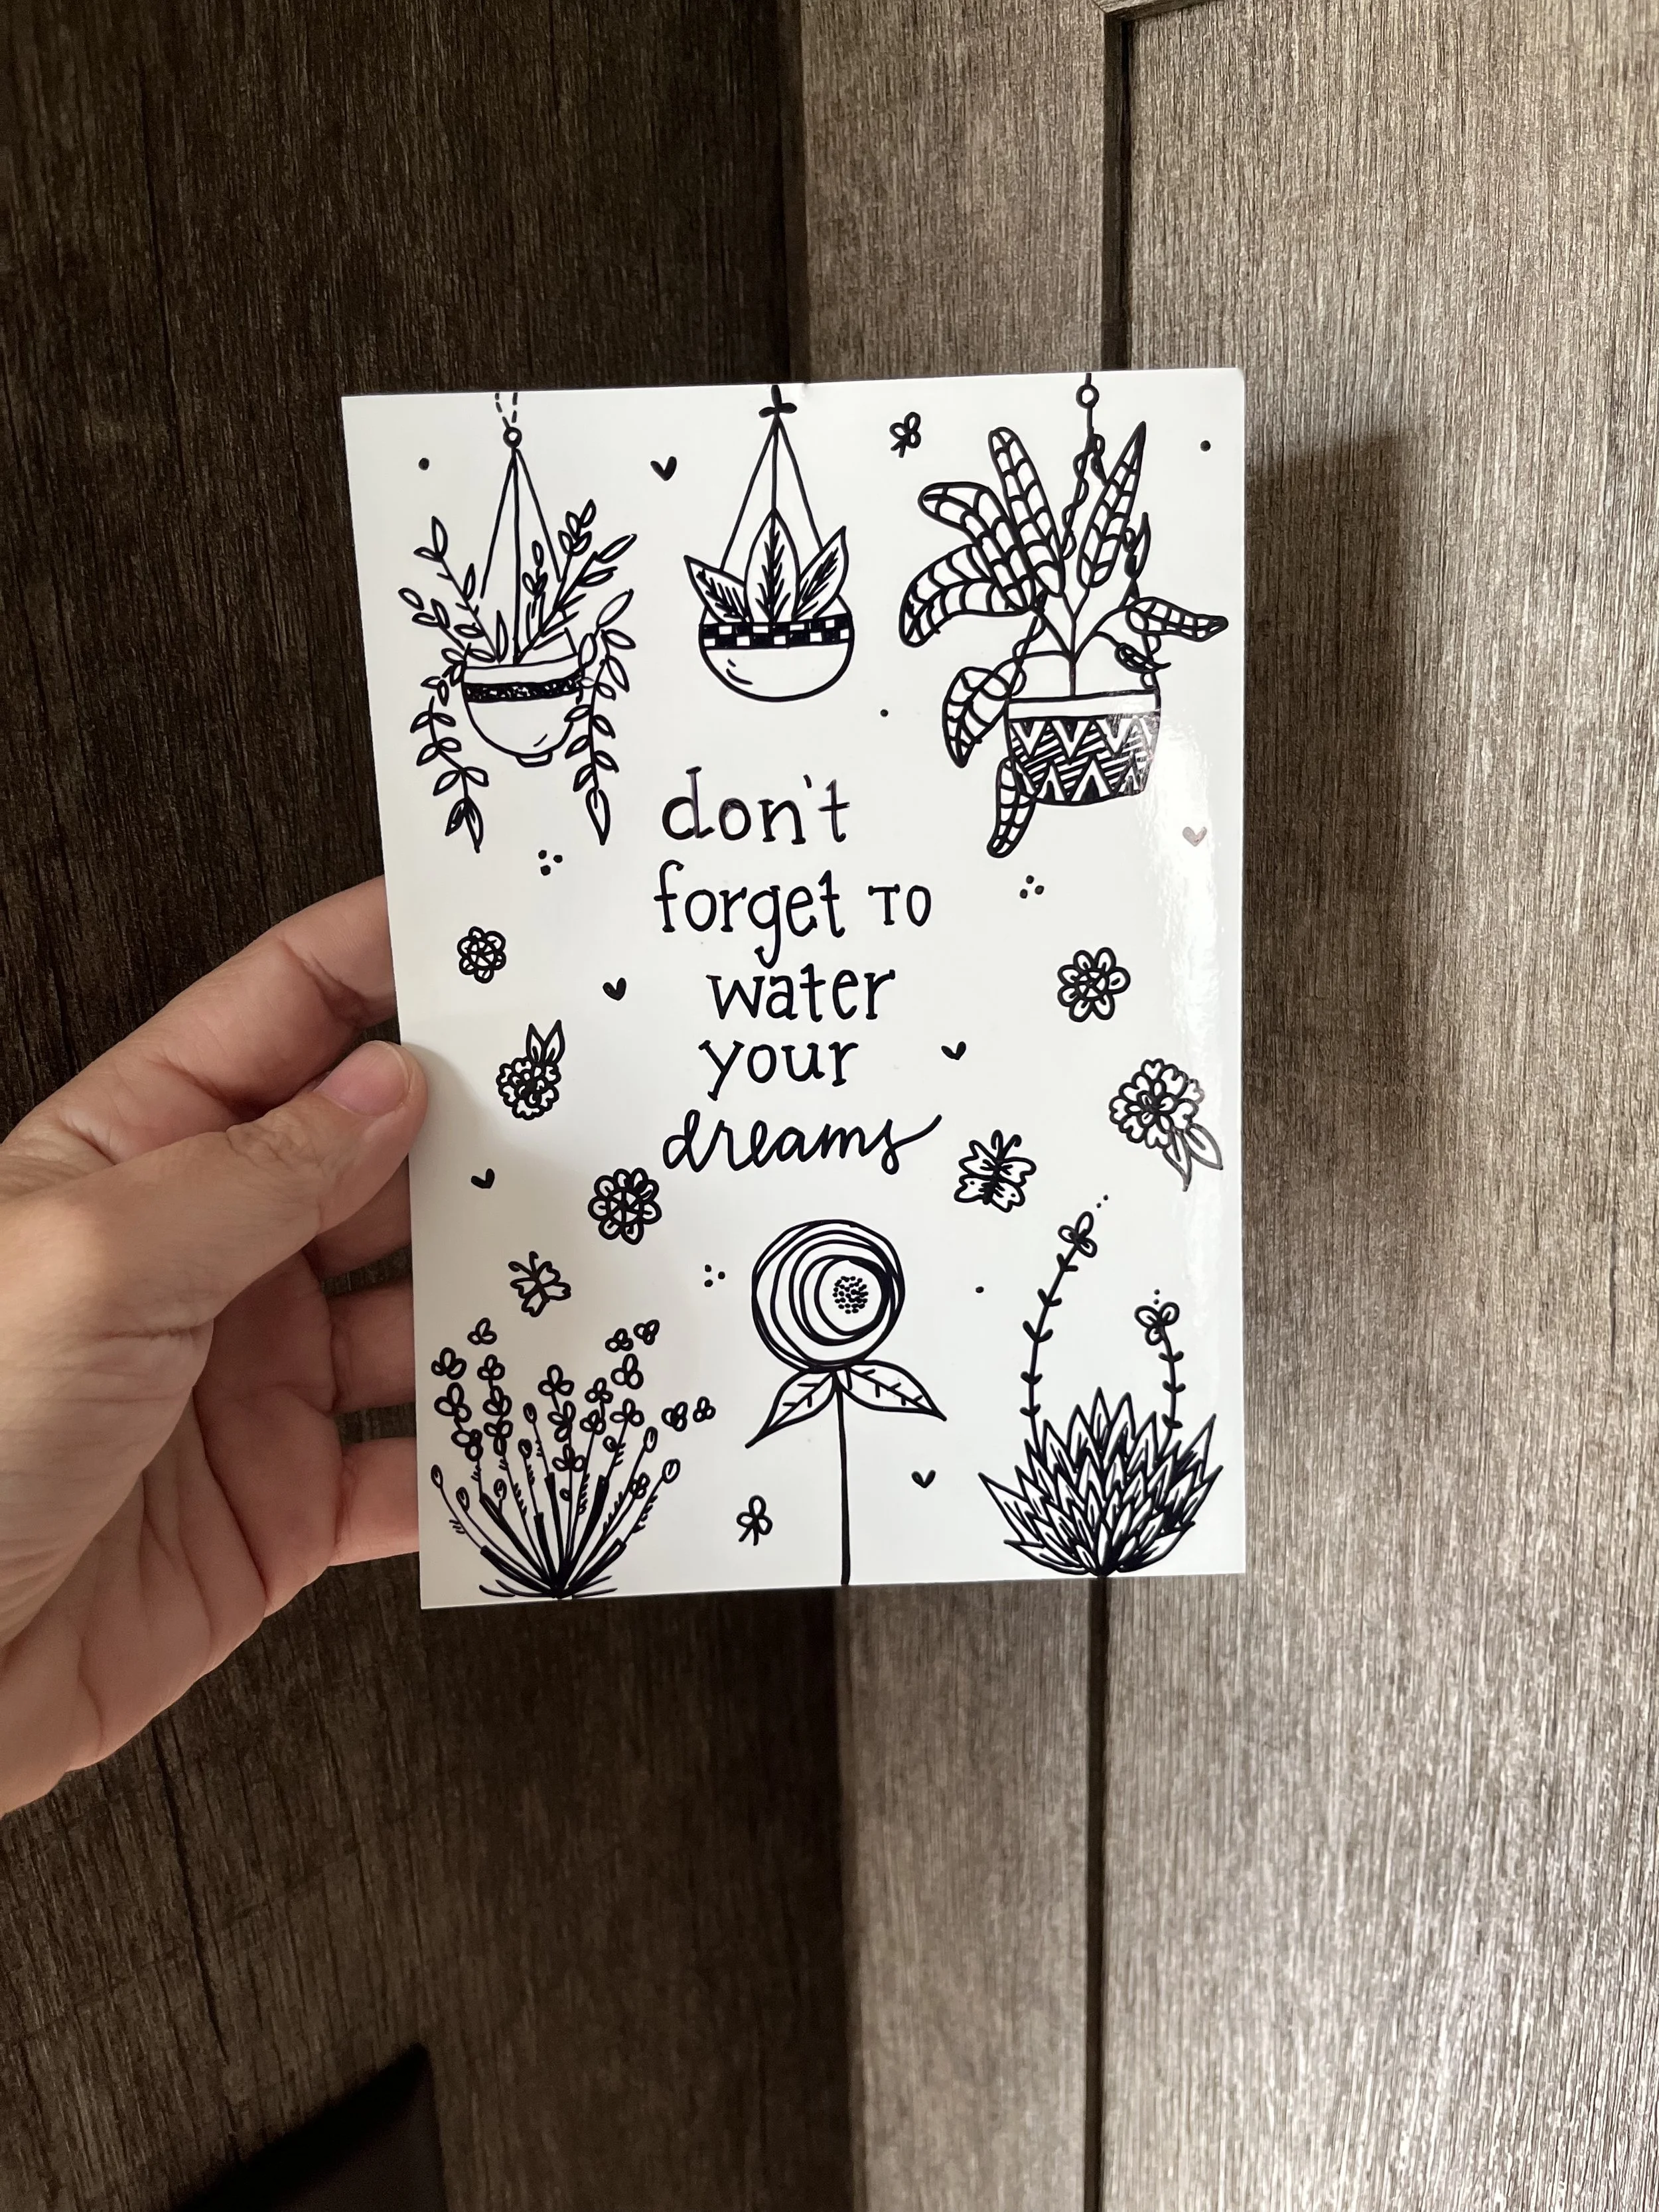 don't
forget TO
water
your
dreams